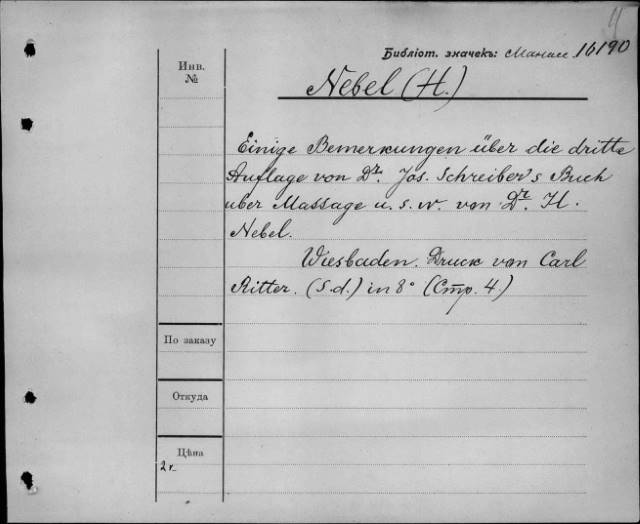 Библіот. значекъ: Манас. 16190
Инв.
№
Nebel (H.)
Einige Bemerkungen über die dritte
Auflage von Dr. Jos. Schreiber's Buch
uber Massage u. s. w. von Dr. H.
Nebel.
Wiesbaden. Druck von Carl
Ritter. (S. d.) in 8° (Стр. 4.)
По заказу
Откуда
Цѣна